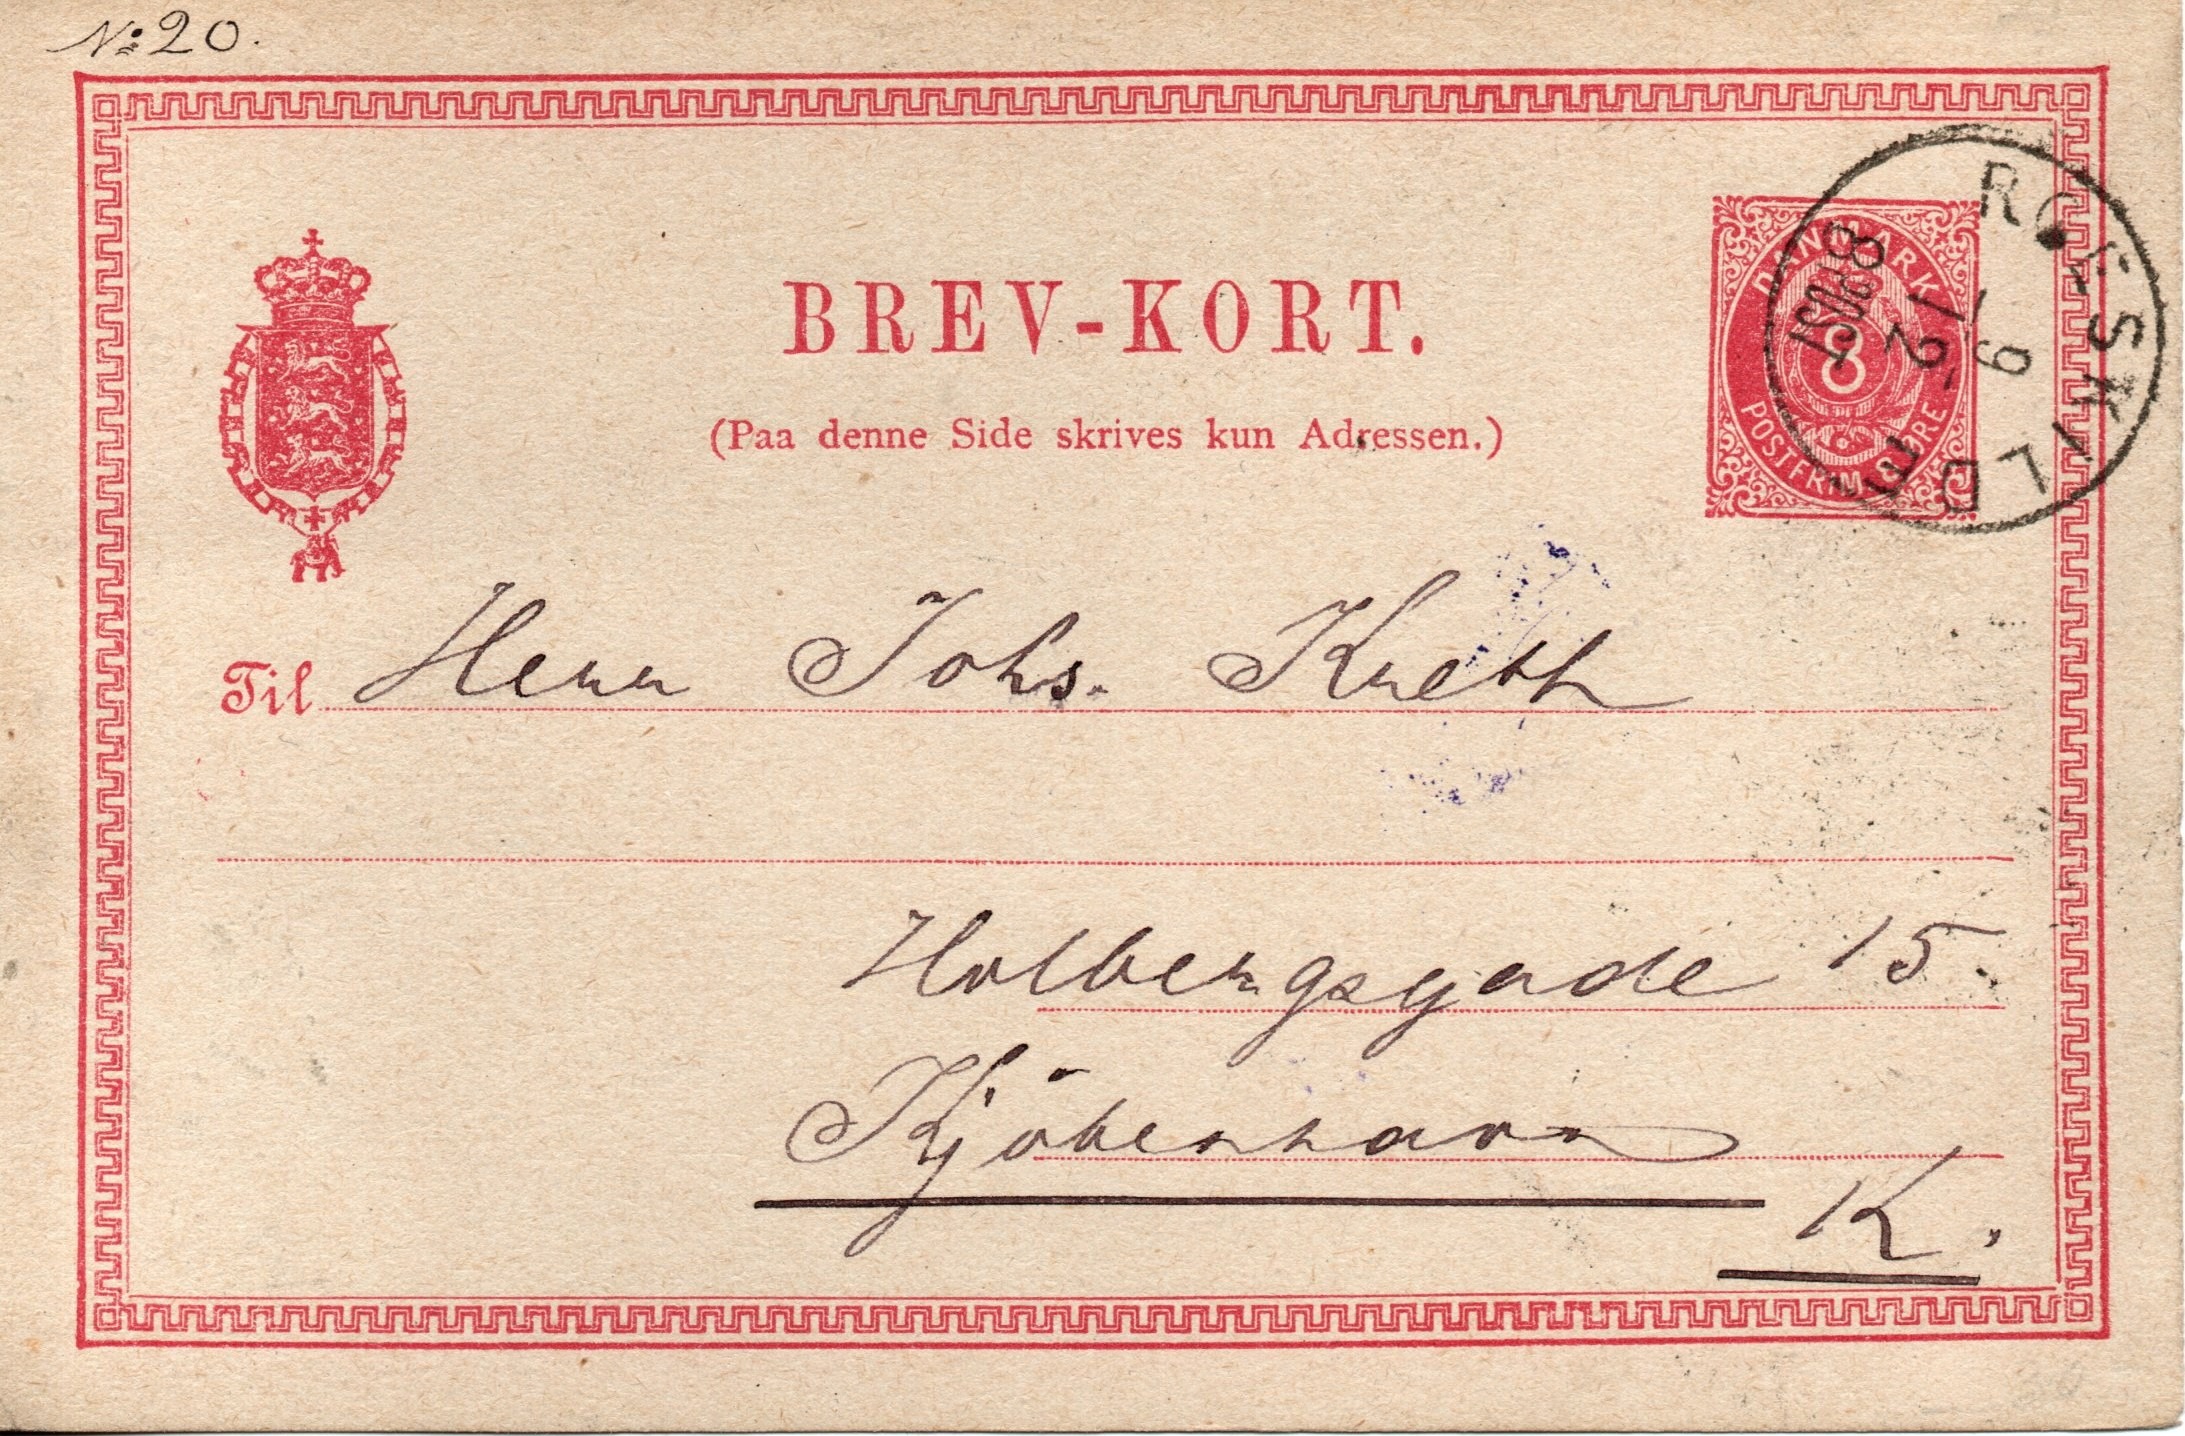 No: 20.
BREV-KORT.
(Paa denne Side skrives kun Adressen.)
DANMARK
8
POSTFRIM 8 ØRE
ROESKILDE
19
12
Til Herr Johs. Kreth
Holbergsgade 15.
Kjöbenhavn
K.